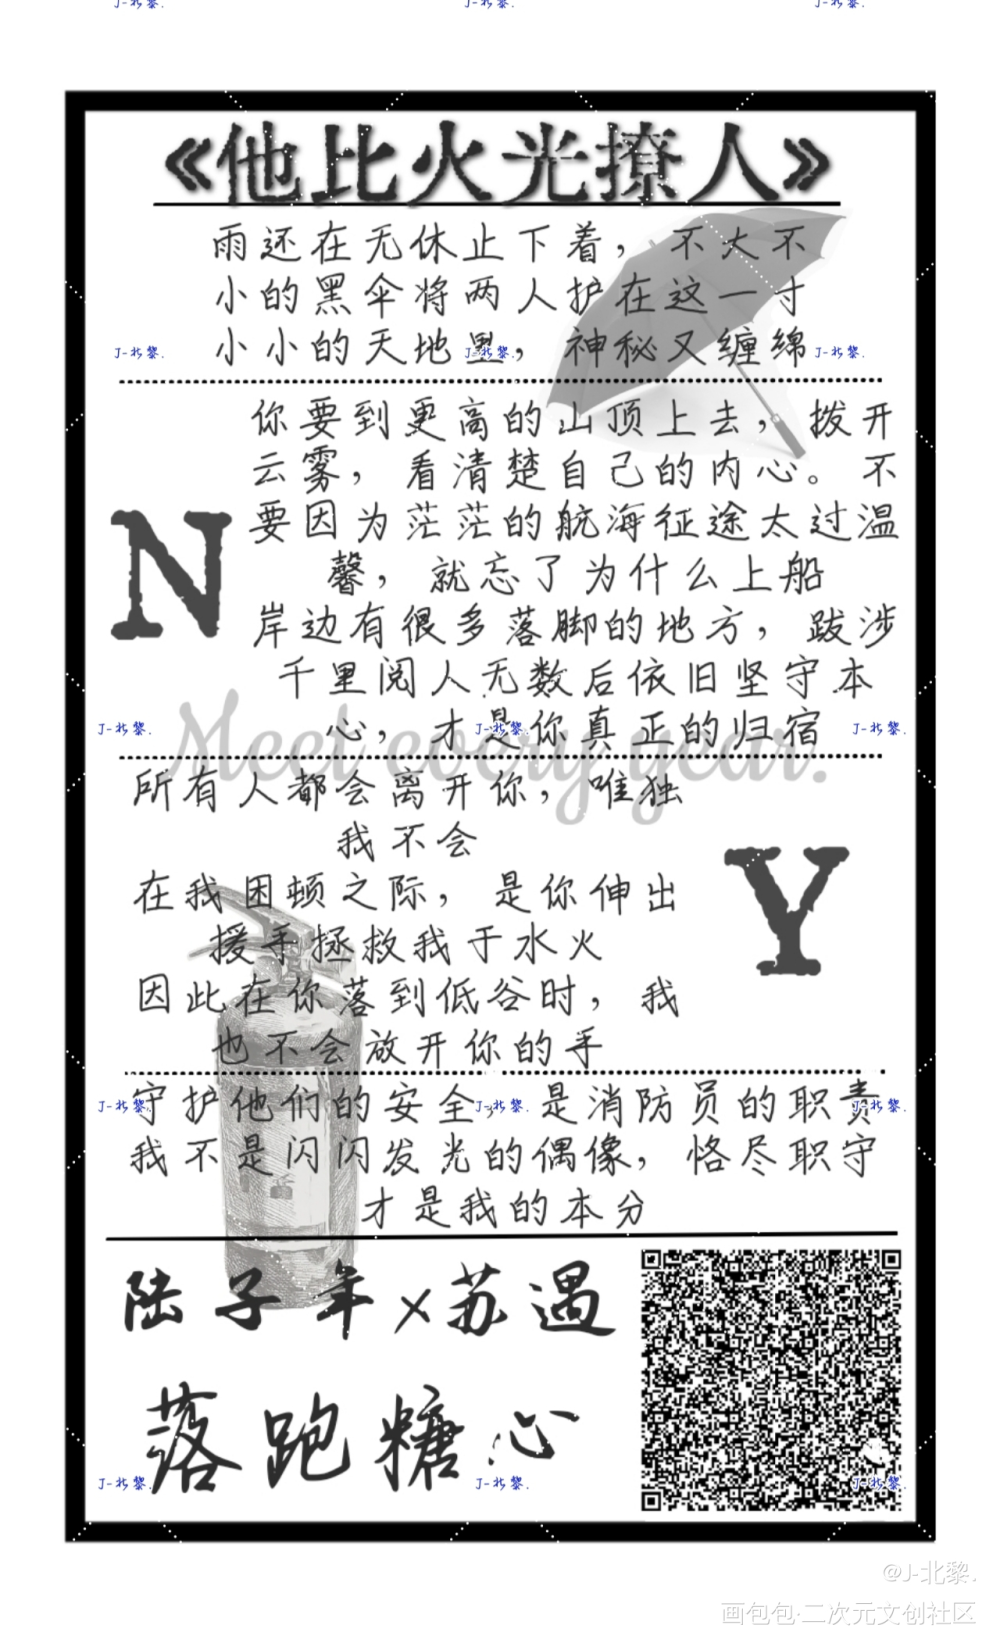 J-北黎. J-北黎. J-北黎.
《他比火光撩人》
雨还在无休止下着，不大不
小的黑伞将两人护在这一寸
小小的天地里，神秘又缠绵
J-北黎. J-北黎. J-北黎.
你要到更高的山顶上去，拨开
云雾，看清楚自己的内心。不
要因为茫茫的航海征途太过温
馨，就忘了为什么上船
N
岸边有很多落脚的地方，跋涉
千里阅人无数后依旧坚守本
心，才是你真正的归宿
J-北黎. J-北黎. J-北黎.
Meet every year.
所有人都会离开你，唯独
我不会
在我困顿之际，是你伸出
援手拯救我于水火
Y
因此在你落到低谷时，我
也不会放开你的手
守护他们的安全，是消防员的职责
J-北黎. J-北黎. J-北黎.
我不是闪闪发光的偶像，恪尽职守
才是我的本分
陆子年×苏遇
落跑糖心
J-北黎. J-北黎. J-北黎.
@J-北黎.
画包包·二次元文创社区